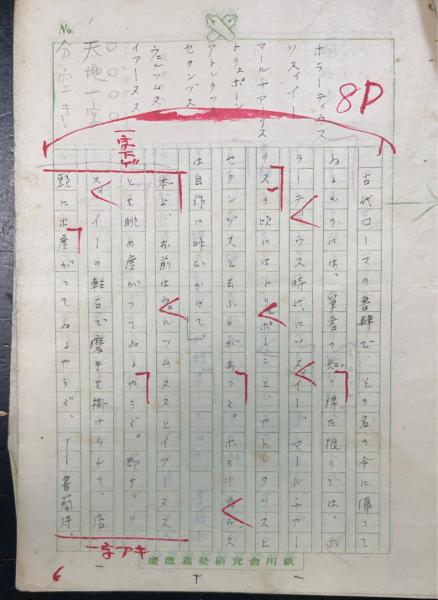 No.
ホラーティウス
ソスイイー
マールチアーリス
トリュポーン
アトレクツス
セクンヅス
ウェルツムヌス
イアーヌス
〇〇〇〇
天地一字
分空き
8P
一字下ゲ
古代ローマの書肆で、その名の今に傳つて
ゐるものには、筆者の知り得た限りでは、ホ
ラーティウス時代にソスイイー、マールチアー
リスの頃にはトリュポーンと、アトレクツスと
セクンヅスと云ふのがあつた。ホラーティウス
は自作に呼びかけて、
本よ、お前はウェルツムヌスとイアーヌス
とを眺め度がつてゐるやうだ。即ちソ
スイイーの軽石で磨きを掛けられて、店
頭に出度がつてゐるやうだ、——書簡詩、
一字アキ
6
慶應義塾研究會用紙